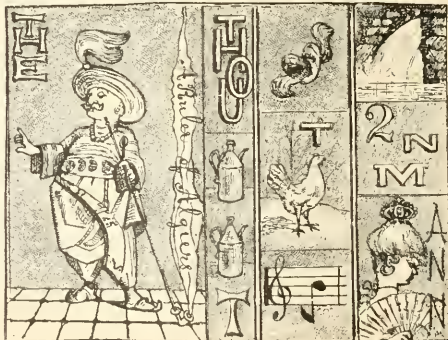 THE
A Ruler of Algiers
THOU
T
T
2 N
M
ANN